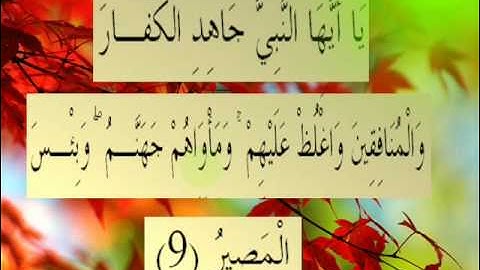 يَا أَيُّهَا النَّبِيُّ جَاهِدِ الْكُفَّارَ
وَالْمُنَافِقِينَ وَاغْلُظْ عَلَيْهِمْ ۚ وَمَأْوَاهُمْ جَهَنَّمُ ۖ وَبِئْسَ
الْمَصِيرُ (9)